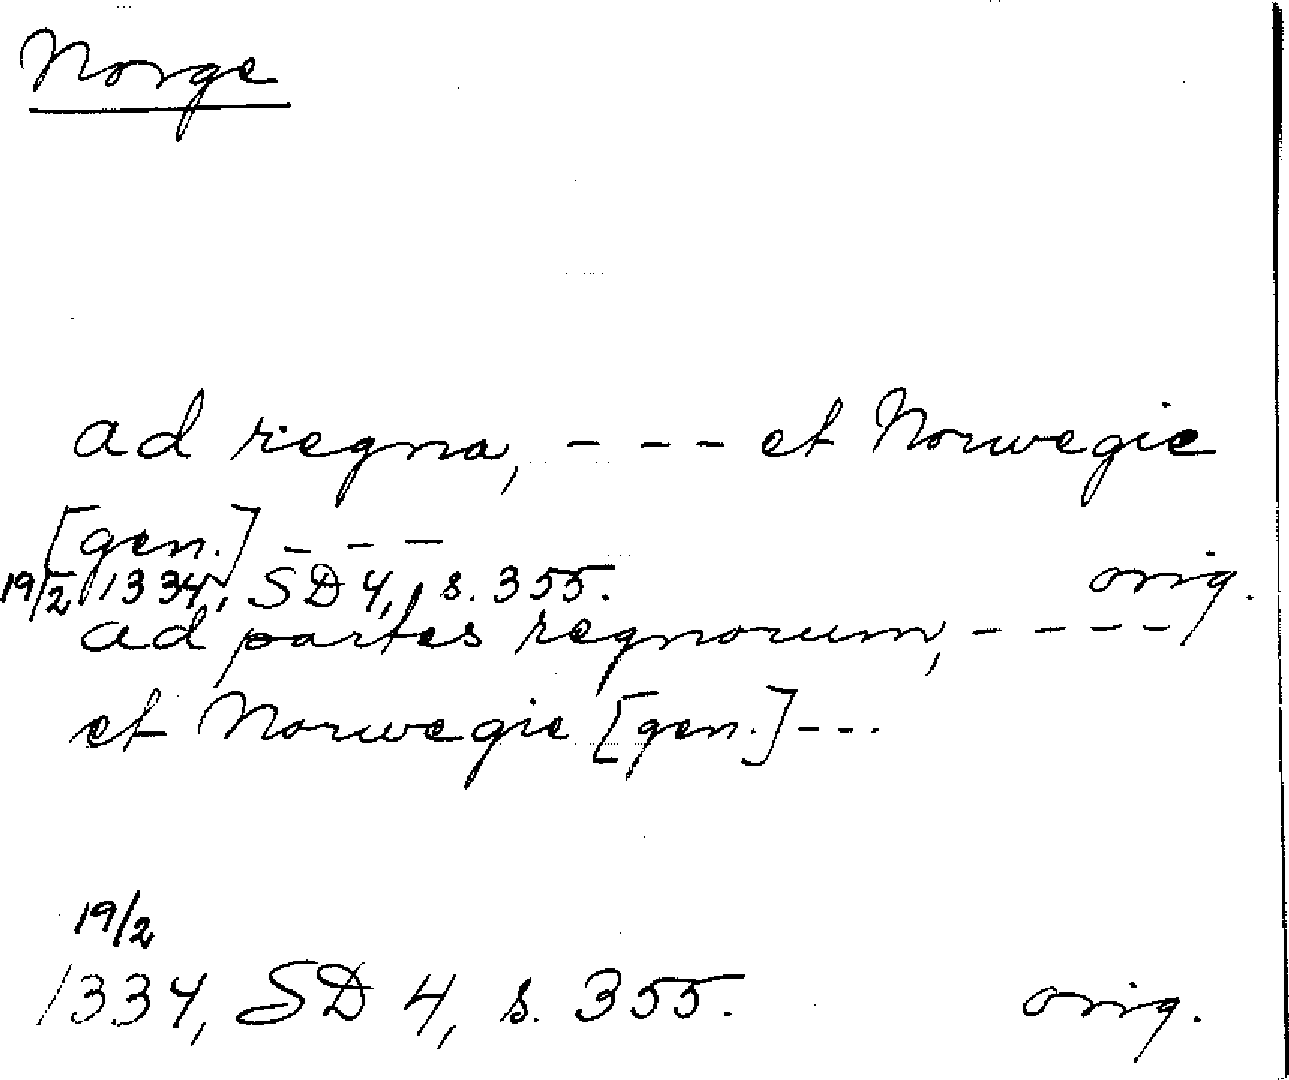 Norge
ad regna, - - - et Norwegie
[gen.] - - -
19/2 1334, SD 4, s. 355. orig.
ad partes regnorum, - - - -
et Norwegie [gen.] - - -.
19/2
1334, SD 4, s. 355. orig.